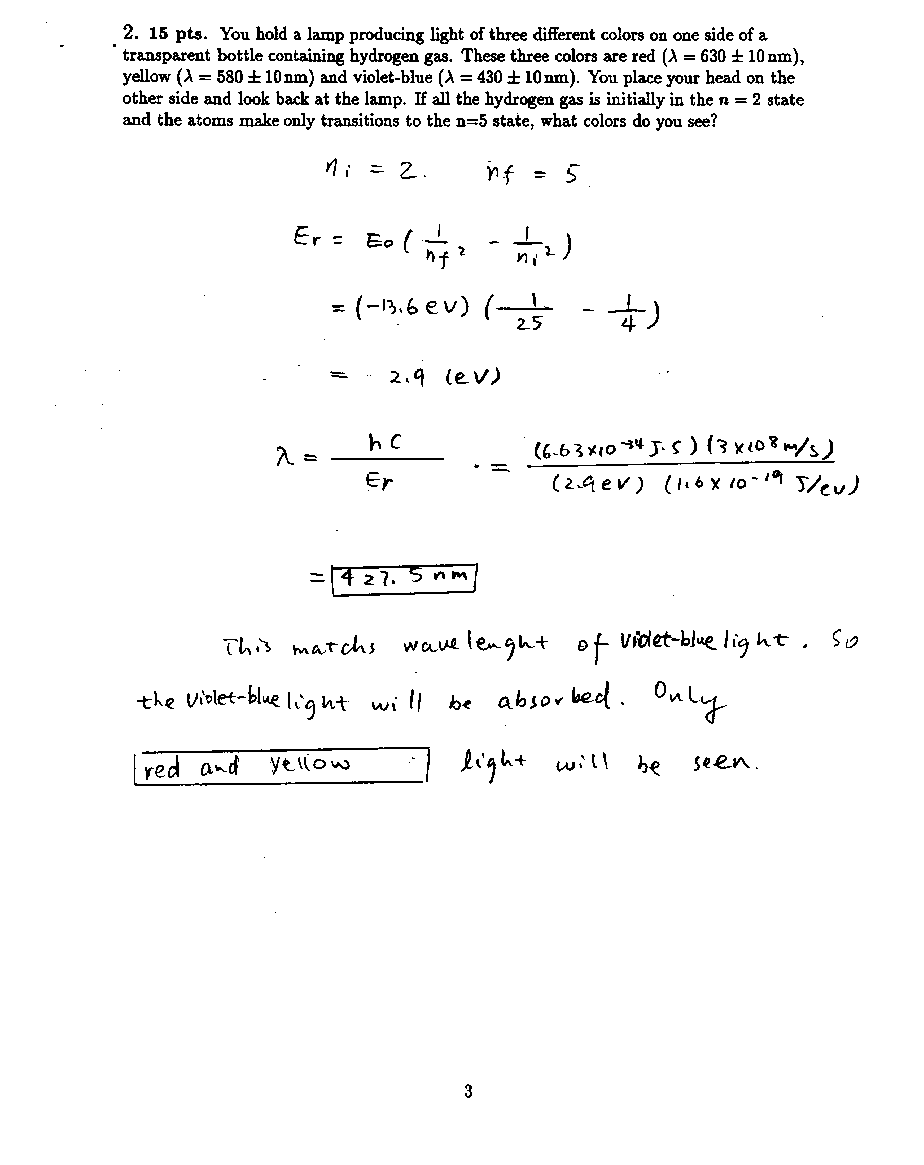 2. 15 pts. You hold a lamp producing light of three different colors on one side of a
transparent bottle containing hydrogen gas. These three colors are red (λ = 630 ± 10 nm),
yellow (λ = 580 ± 10 nm) and violet-blue (λ = 430 ± 10 nm). You place your head on the
other side and look back at the lamp. If all the hydrogen gas is initially in the n = 2 state
and the atoms make only transitions to the n=5 state, what colors do you see?
ni = 2. nf = 5
Er = E0 ( 1/nf² - 1/ni² )
= (-13.6 eV) ( 1/25 - 1/4 )
= 2.9 (eV)
λ = hC/Er = (6.63×10⁻³⁴ J·S) (3×10⁸ m/s) / (2.9 eV) (1.6×10⁻¹⁹ J/eV)
= 427.5 nm
This matchs wavelenght of violet-blue light. So
the violet-blue light will be absorbed. Only
red and yellow light will be seen.
3